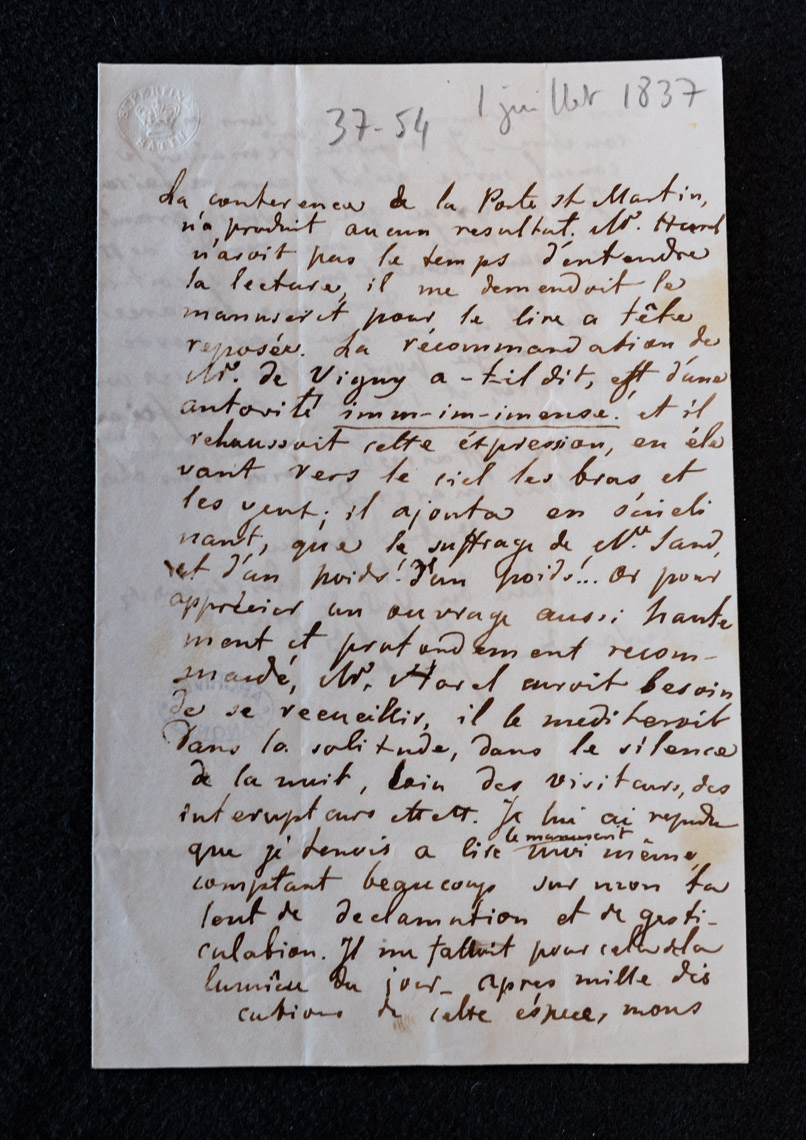 SUPERFINE
SATIN
37-54
1 juillet 1837
La conference de la Porte St Martin,
n'a produit aucun resultat. Mr. Harel
n'avoit pas le temps d'entendre
la lecture, il me demendoit le
manuscrit pour le lire a tête
reposée. La récommandation de
Mr. de Vigny a-t-il dit, est d'une
autorité imm-im-imense. et il
rehaussoit cette éxpression, en éle
vant vers le ciel les bras et
les yeux; il ajouta en s'incli
nant, que le suffrage de Me. Sand,
et d'un poids! d'un poids!... Or pour
apprécier un ouvrage aussi haute
ment et profondement recom-
mandé, Mr. Harel auroit besoin
de se recueillir, il le mediteroit
dans la solitude, dans le silence
de la nuit, loin des visiteurs, des
interupteurs ett ett. Je lui ai repondu
que je tenois a lire le manuscrit moi même,
comptant beaucoup sur mon ta
lent de declamation et de gesti-
culation. Il me falloit pour cela de la
lumière du jour_ apres mille dis
cutions de cette éspece, nous